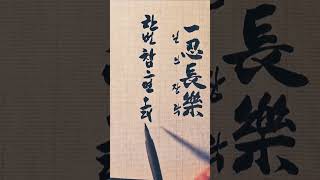 一忍長樂
일인장락
한번 참으면